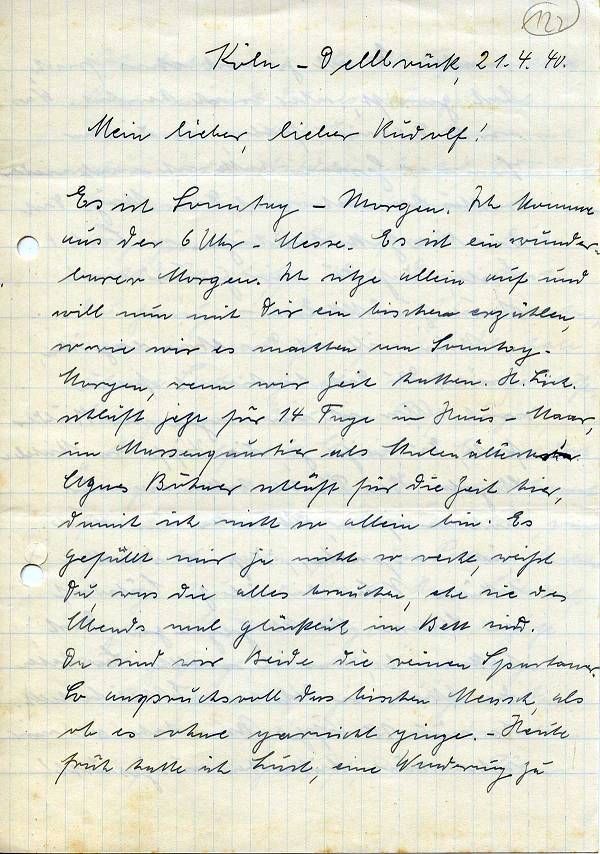 122
Köln - Dellbrück, 21.4.40.
Mein lieber, lieber Rudolf!
Es ist Sonntag - Morgen. Ich komme
aus der 6 Uhr - Messe. Es ist ein wunder-
barer Morgen. Ich sitze allein auf und
will nun mit Dir ein bischen erzählen,
so wie wir es machten am Sonntag-
Morgen, wenn wir Zeit hatten. H.
schläft jetzt für 14 Tage in Haus - Maar,
im Massenquartier als Stubenälteste.
Agnes Böhner schläft für die Zeit hier,
damit ich nicht so allein bin. Es
gefällt mir ja nicht so recht, weißt
Du, was die alles brauchen, ehe sie des
Abends mal glücklich im Bett sind.
Da sind wir Beide die reinen Spartaner.
So anspruchsvoll das bischen Mensch, als
ob es ohne garnicht ginge. - Heute
früh hatte ich Lust, eine Wanderung zu